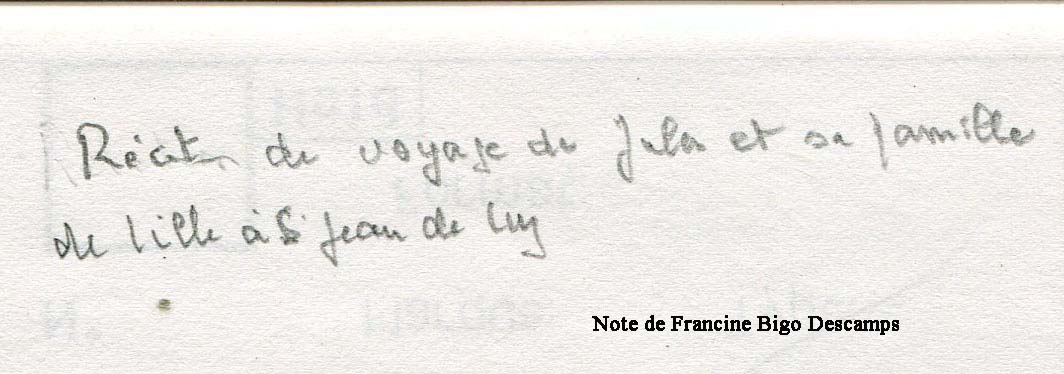 Récit de voyage de Jules et sa famille
de Lille à St Jean de Luz
Note de Francine Bigo Descamps